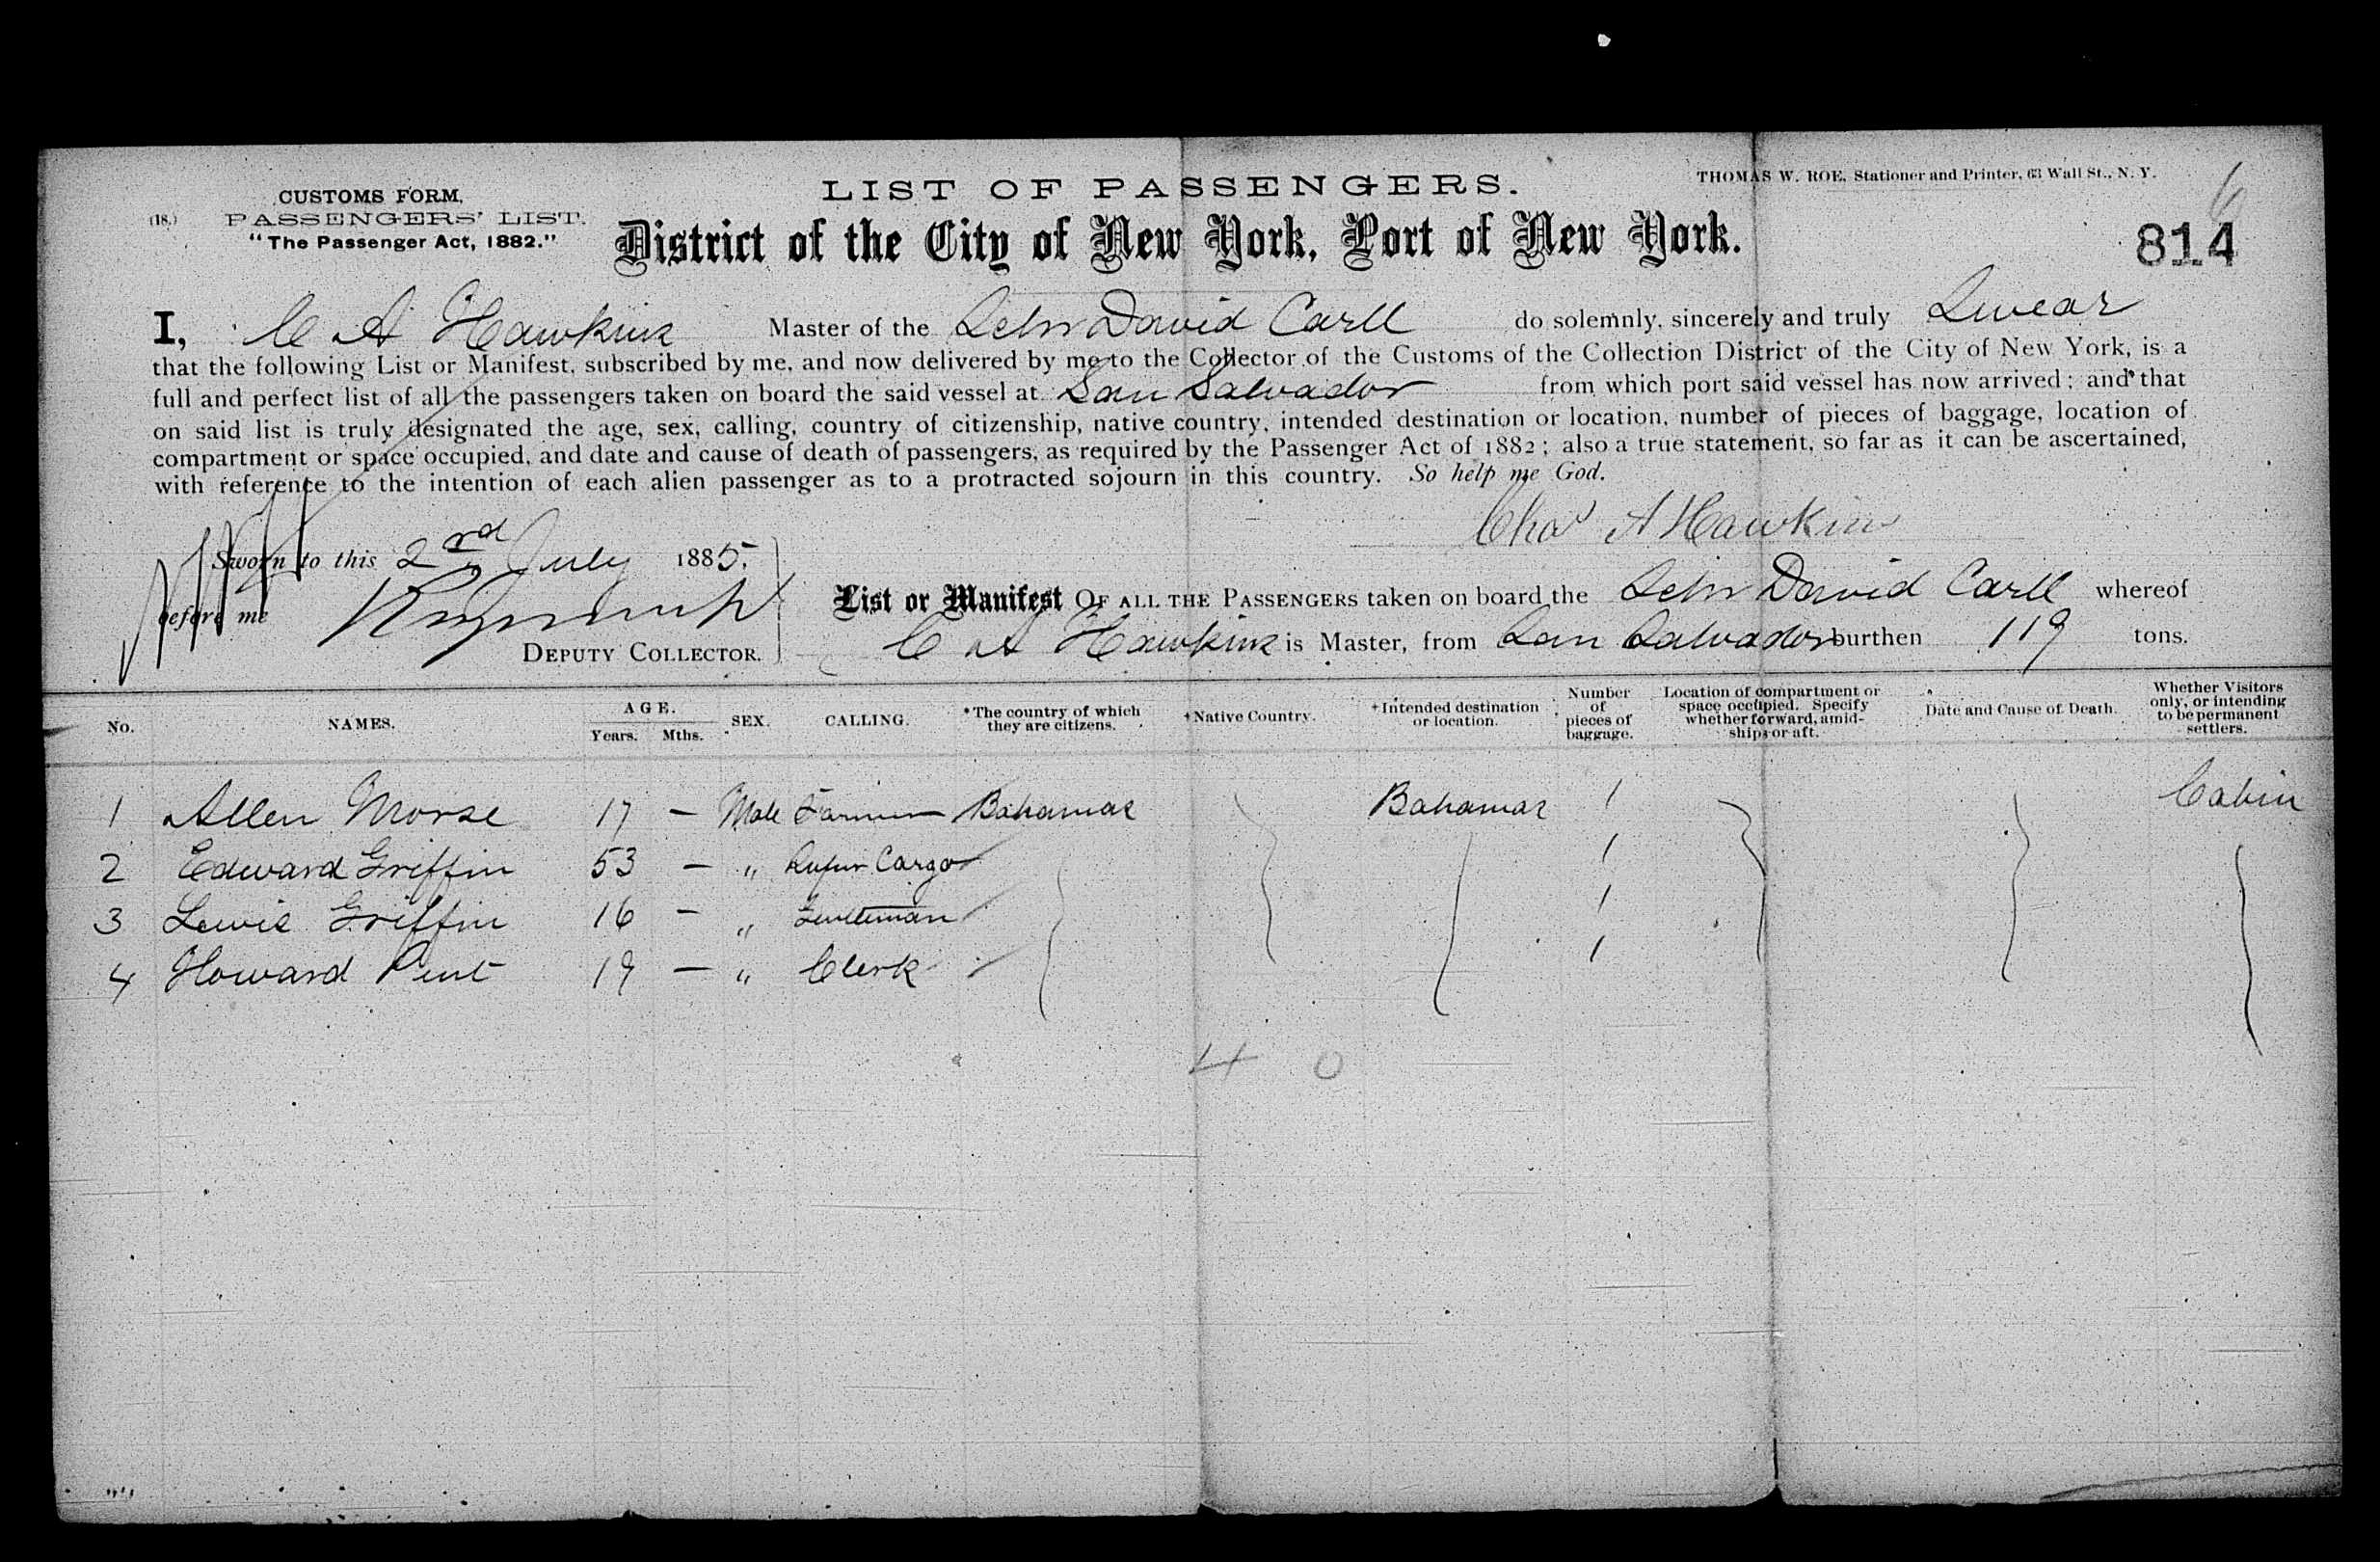 CUSTOMS FORM,
(18.) PASSENGERS' LIST.
"The Passenger Act, 1882."
LIST OF PASSENGERS.
THOMAS W. ROE, Stationer and Printer, 63 Wall St., N. Y.
6
District of the City of New York, Port of New York.
814
I, C A Hawkins Master of the Schr David Carll do solemnly, sincerely and truly Swear
that the following List or Manifest, subscribed by me, and now delivered by me to the Collector of the Customs of the Collection District of the City of New York, is a
full and perfect list of all the passengers taken on board the said vessel at San Salvador from which port said vessel has now arrived; and that
on said list is truly designated the age, sex, calling, country of citizenship, native country, intended destination or location, number of pieces of baggage, location of
compartment or space occupied, and date and cause of death of passengers, as required by the Passenger Act of 1882; also a true statement, so far as it can be ascertained,
with reference to the intention of each alien passenger as to a protracted sojourn in this country. So help me God.
Chas A Hawkins
Sworn to this 2rd July 1885.
before me
DEPUTY COLLECTOR.
List or Manifest OF ALL THE PASSENGERS taken on board the Schr David Carll whereof
C A Hawkins is Master, from San Salvador burthen 119 tons.
No. NAMES. AGE. Years. Mths. SEX. CALLING. *The country of which they are citizens. +Native Country. +Intended destination or location. Number of pieces of baggage. Location of compartment or space occupied. Specify whether forward, amidships or aft. Date and Cause of Death. Whether Visitors only, or intending to be permanent settlers.
1 Allen Morse 17 — Male Farmer Bahamas Bahamas 1 Cabin
2 Edward Griffin 53 — " Cargo 1
3 Lewis Griffin 16 — " Gentleman 1
4 Howard Pent 19 — " Clerk 1
4 0